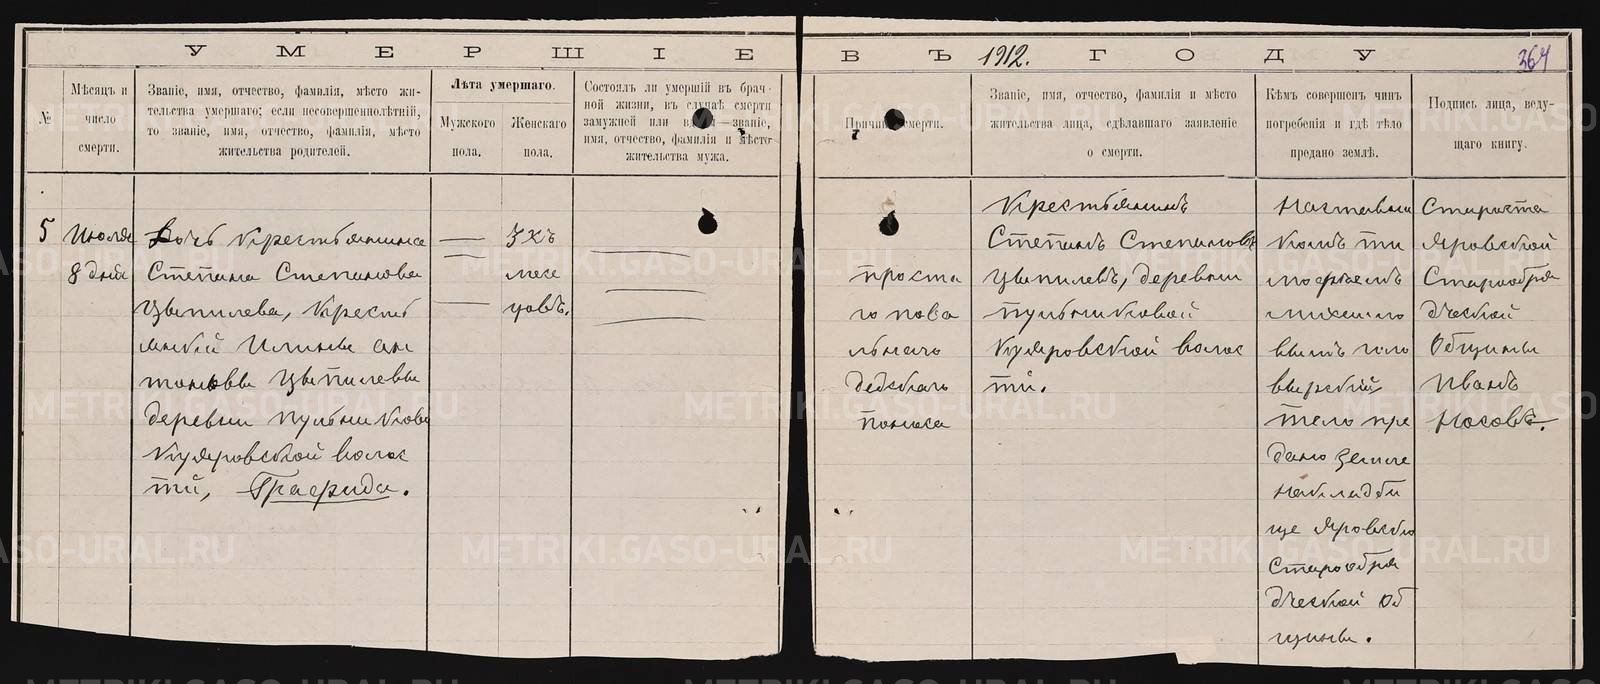 УМЕРШІЕ ВЪ 1912. ГОДУ
364
№
Мѣсяцъ и
число
смерти.
Званіе, имя, отчество, фамилія, мѣсто жи-
тельства умершаго; если несовершеннолѣтній,
то званіе, имя, отчество, фамилія, мѣсто
жительства родителей.
Лѣта умершаго.
Мужского
пола.
Женскаго
пола.
Состоялъ ли умершій въ брач-
ной жизни, въ случаѣ смерти
замужней или — званіе,
имя, отчество, фамилія и мѣсто-
жительства мужа.
Причина смерти.
Званіе, имя, отчество, фамилія и мѣсто
жительства лица, сдѣлавшаго заявленіе
о смерти.
Кѣмъ совершенъ чинъ
погребенія и гдѣ тѣло
предано землѣ.
Подпись лица, веду-
щаго книгу.
5
Июля
8 дня
Дочь Крестьянина
Степана Степанова
Цыпилева, Кресть
янкой
Цыпилевы
деревни
волос
ти, Графида.
3хъ
меся
цовъ.
проста
го пова
льнаго
детскаго
поноса
Крестьянинъ
Степанъ Степановъ
Цыпилевъ, деревни
волос
ти.
Наставни
комъ ти
мофеемъ
михаило
вымъ
тело пре
дано земле
накладби
ще Яровско
Старообря
дческой Об
щины.
Староста
Яровской
Старообря
дческой
Общины
Иванъ
Носовъ.
METRIKI.GASO-URAL.RU